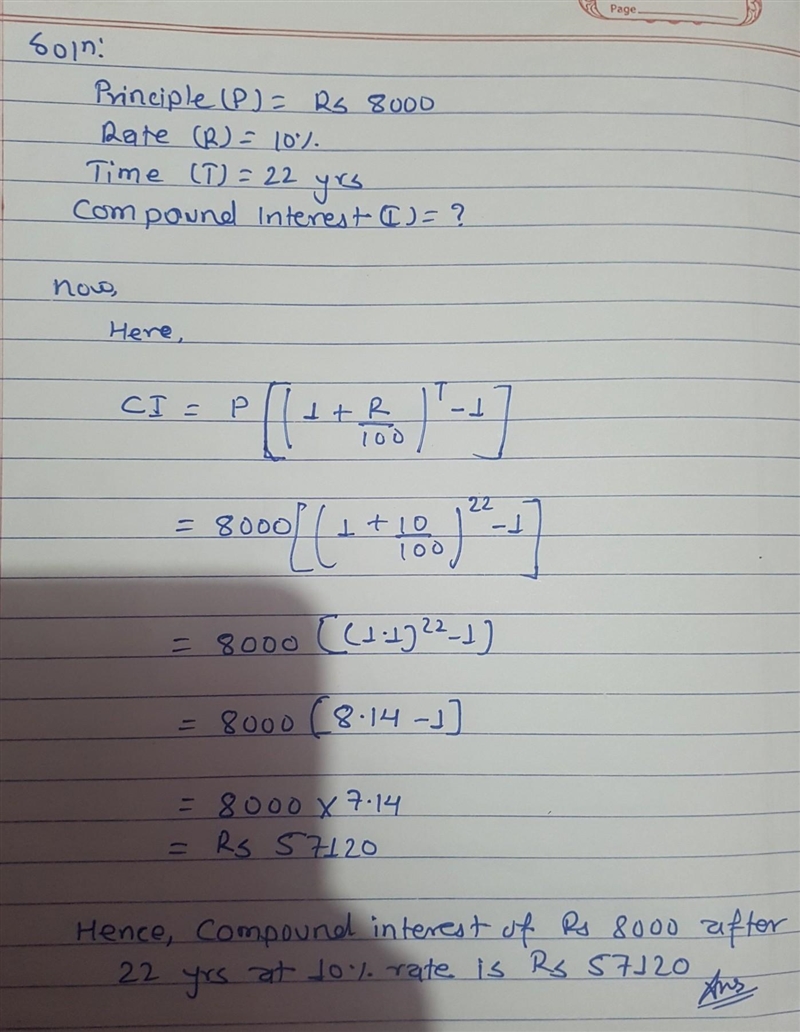 Page
Soln:
Principle (P) = Rs 8000
Rate (R) = 10%.
Time (T) = 22 yrs
Compound interest (I) = ?
Now,
Here,
CI = P [(1 + R/100)^T - 1]
= 8000 [(1 + 10/100)^22 - 1]
= 8000 [(1.1)^22 - 1]
= 8000 [8.14 - 1]
= 8000 × 7.14
= Rs 57120
Hence, Compound interest of Rs 8000 after
22 yrs at 10% rate is Rs 57120
Ans